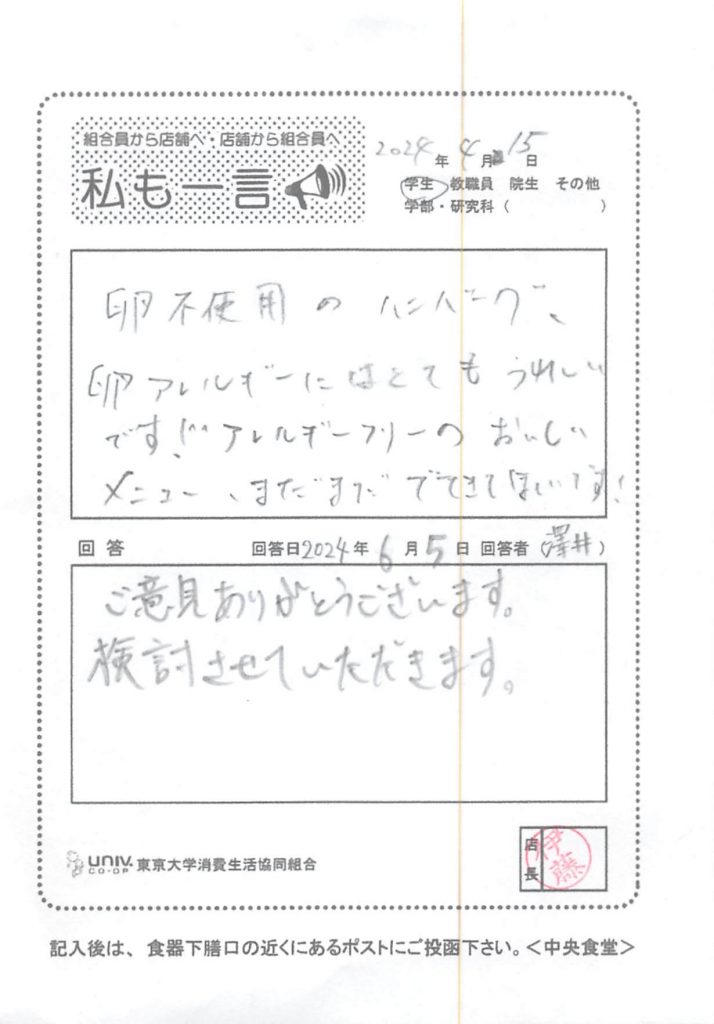 組合員から店舗へ・店舗から組合員へ
私も一言
2024年4月15日
学生 教職員 院生 その他
学部・研究科（ ）
卵不使用のハンバーグ、
卵アレルギーにはとてもうれしい
です!! アレルギーフリーのおいしい
メニュー、まだまだでてきてほしいです!
回答 回答日2024年6月5日 回答者（澤井）
ご意見ありがとうございます。
検討させていただきます。
UNIV.
CO-OP
東京大学消費生活協同組合
店長
伊藤
記入後は、食器下膳口の近くにあるポストにご投函下さい。＜中央食堂＞